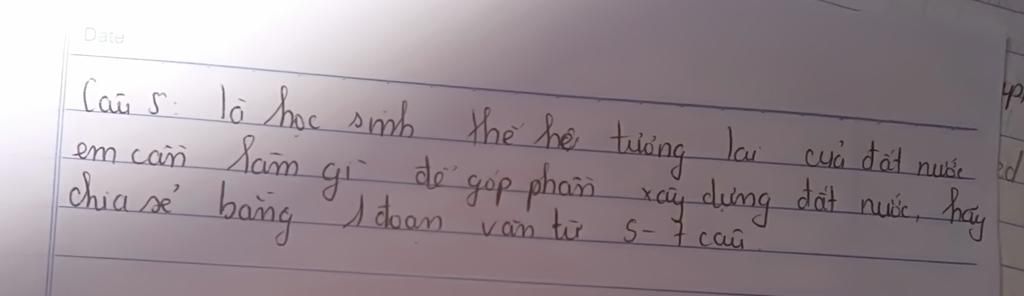 Date
Câu 5: là học sinh thế hệ tương lai của đất nước
em cần làm gì để góp phần xây dựng đất nước, hãy
chia sẻ bằng 1 đoạn văn từ 5-7 câu
ed